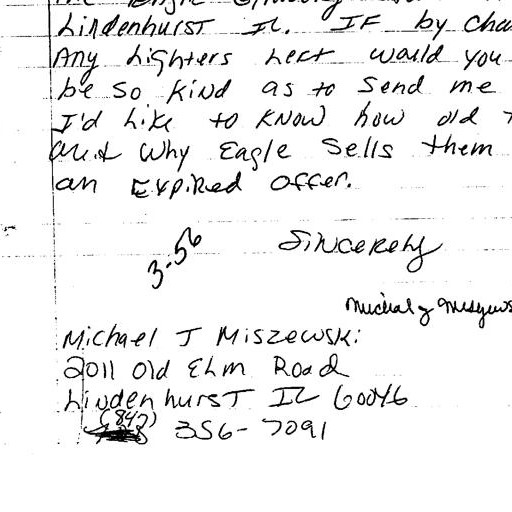 Lindenhurst IL. IF by Cha
Any Lighters Left would you
be so kind as to send me
I'd Like to KNOW how old
and why Eagle Sells them
an Expired offer.
3-56 Sincerely
Michael J Miszewski
2011 Old Elm Road
Lindenhurst IL 60046
(847)
356-7091